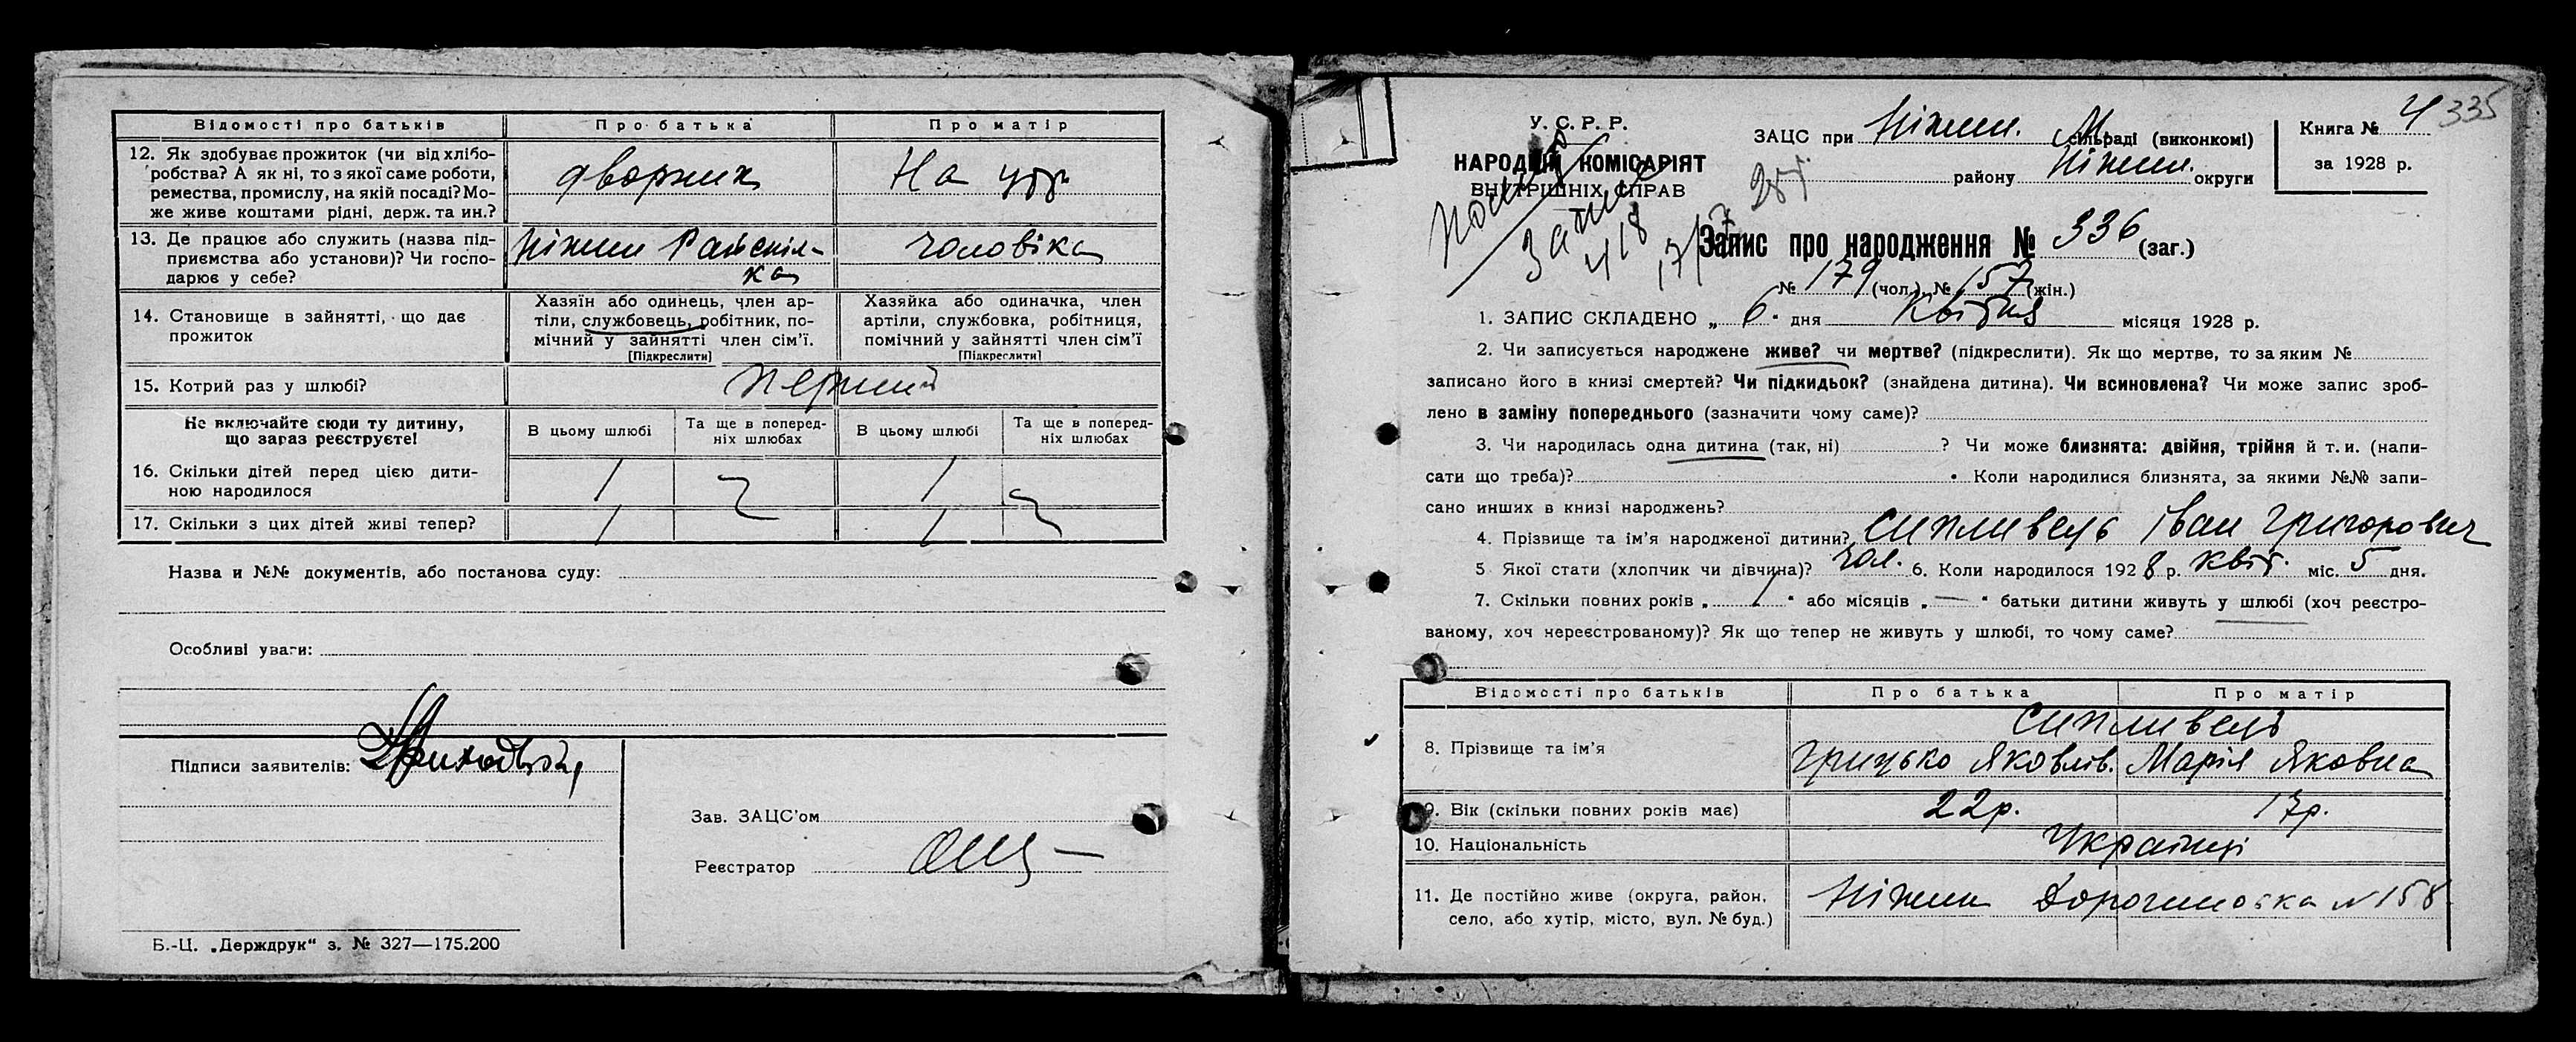 Відомості про батьків Про батька Про матір
12. Як здобуває прожиток (чи від хлібо-
робства? А як ні, то з якої саме роботи,
ремества, промислу, на якій посаді? Мо-
же живе коштами рідні, держ. та ин.?
дворник
На утр.
13. Де працює або служить (назва під-
приємства або установи)? Чи госпо-
дарює у себе?
Ніжин Райспіл-
ка
чоловіка
14. Становище в зайнятті, що дає
прожиток
Хазяїн або одинець, член ар-
тіли, службовець, робітник, по-
мічний у зайнятті член сім'ї.
[Підкреслити]
Хазяйка або одиначка, член
артіли, службовка, робітниця,
помічний у зайнятті член сім'ї
[Підкреслити]
15. Котрий раз у шлюбі? перший
Не включайте сюди ту дитину,
що зараз реєструєте!
В цьому шлюбі
Та ще в поперед-
ніх шлюбах
В цьому шлюбі
Та ще в поперед-
ніх шлюбах
16. Скільки дітей перед цією дити-
ною народилося
1 1
17. Скільки з цих дітей живі тепер? 1 1
Назва и №№ документів, або постанова суду:
Особливі уваги:
Підписи заявителів:
Зав. ЗАЦС'ом
Реєстратор
Б.-Ц. „Держдрук“ з. № 327—175.200
У. С. Р. Р.
НАРОДНІЙ КОМІСАРІЯТ
ВНУТРІШНІХ СПРАВ
418
17/7
ЗАЦС при Ніжин. М. сільраді (виконкомі)
району Ніжин. округи
Книга № 4 335
за 1928 р.
Запис про народження № 336 (заг.)
№ 179 (чол.), № 157 (жін.)
1. ЗАПИС СКЛАДЕНО „ 6 “ дня Квітня місяця 1928 р.
2. Чи записується народжене живе? чи мертве? (підкреслити). Як що мертве, то за яким №
записано його в книзі смертей? Чи підкидьок? (знайдена дитина). Чи всиновлена? Чи може запис зроб-
лено в заміну попереднього (зазначити чому саме)?
3. Чи народилась одна дитина (так, ні) ? Чи може близнята: двійня, трійня й т. и. (напи-
сати що треба)? . Коли народилися близнята, за якими №№ запи-
сано инших в книзі народжень?
4. Прізвище та ім'я народженої дитини? Сипливець Іван Григорович
5 Якої стати (хлопчик чи дівчина)? чол. 6. Коли народилося 1928 р. квіт. міс. 5 дня.
7. Скільки повних років „ 1 “ або місяців „ — “ батьки дитини живуть у шлюбі (хоч реєстро-
ваному, хоч нереєстрованому)? Як що тепер не живуть у шлюбі, то чому саме?
Відомості про батьків Про батька Про матір
8. Прізвище та ім'я
Сипливець
Грицько Яковлів. Марія Яковна
9. Вік (скільки повних років має) 22р. 17р.
10. Національність Українці
11. Де постійно живе (округа, район,
село, або хутір, місто, вул. № буд.)
Ніжин № 158